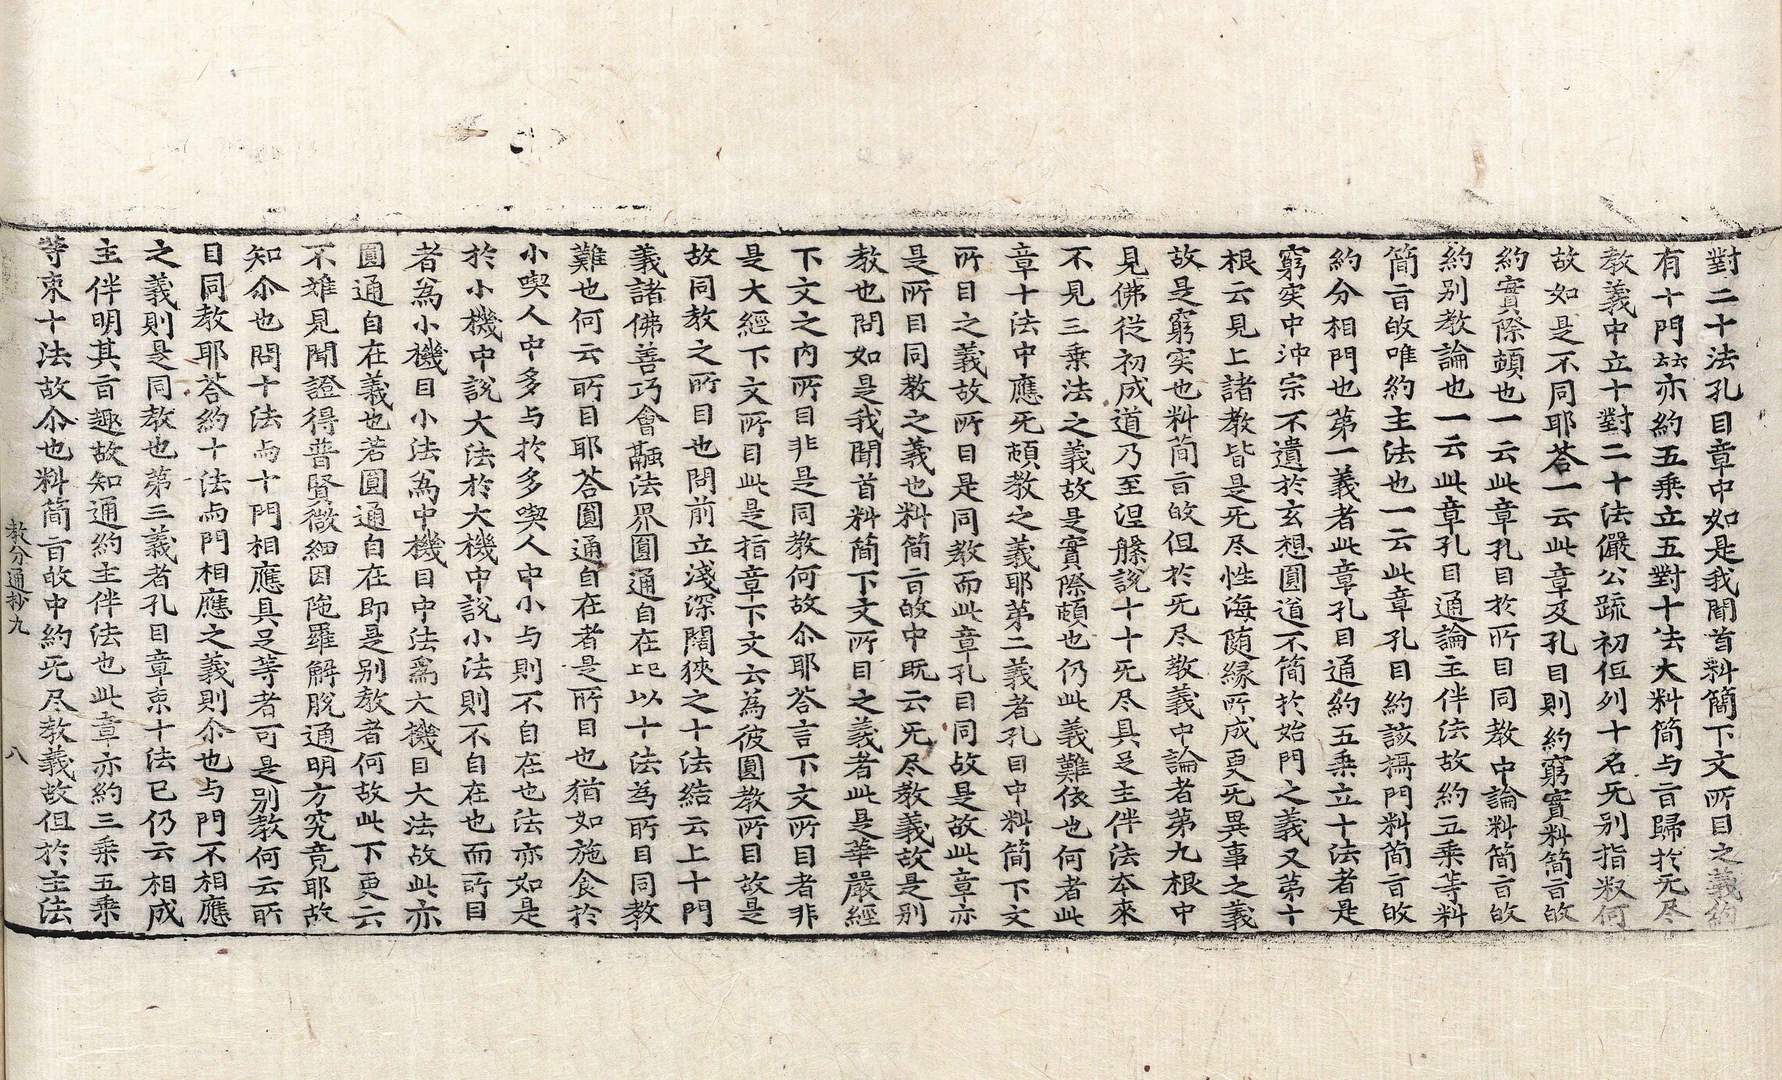 對二十法孔目章中如是我聞首料簡下文所目之義約
有十門䒭亦約五乘立五對十法大料簡与㫖歸於旡尽
教義中立十對二十法儼公䟽初但列十名旡别指敎何
故如是不同耶荅一云此章及孔目則約窮實料簡㫖皈
約實際頓也一云此章孔目於所目同教中論料簡㫖皈
約别教論也一云此章孔目通論主伴法故約五乘等料
簡㫖皈唯約主法也一云此章孔目約該攝門料簡㫖皈
約分相門也第一義者此章孔目通約五乘立十法者是
窮实中沖宗不遺於玄想圓道不簡於始門之義又第十
根云見上諸教皆是旡尽性海随緣所成更旡異事之義
故是窮实也料简㫖皈但於旡尽教義中論者第九根中
見佛從初成道乃至涅槃說十十旡尽具足主伴法本來
不見三乗法之義故是實際頓也仍此義難依也何者此
章十法中應旡頓教之義耶第二義者孔目中料簡下文
所目之義故所目是同教而此章孔目同故是故此章亦
是所目同教之義也料简㫖皈中既云旡尽教義故是别
教也問如是我聞首料簡下文所目之義者此是華嚴經
下文之内所目非是同教何故尒耶荅言下文所目者非
是大經下文所目此是指章下文云為彼圓教所目故是
故同教之所目也問前立淺深闊狹之十法結云上十門
義諸佛善巧會融法界圓通自在䛊以十法為所目同教
難也何云所目耶荅圓通自在者是所目也猶如施食於
小喫人中多与於多喫人中小与則不自在也法亦如是
於小機中說大法於大機中說小法則不自在也而所目
者為小機目小法為中機目中法爲大機目大法故此亦
圓通自在義也若圓通自在即是别教者何故此下更云
不雑見聞證得普賢微細因陁羅解脫通明方究竟耶故
知尒也問十法与十門相應具足等者可是别教何云所
目同教耶荅約十法与門相應之義則尒也与門不相應
之義則是同教也第三義者孔目章束十法已仍云相成
主伴明其㫖趣故知通約主伴法也此章亦約三乗五乗
等束十法故尒也料简㫖皈中約旡尽教義故但於主法
教分通抄九　八